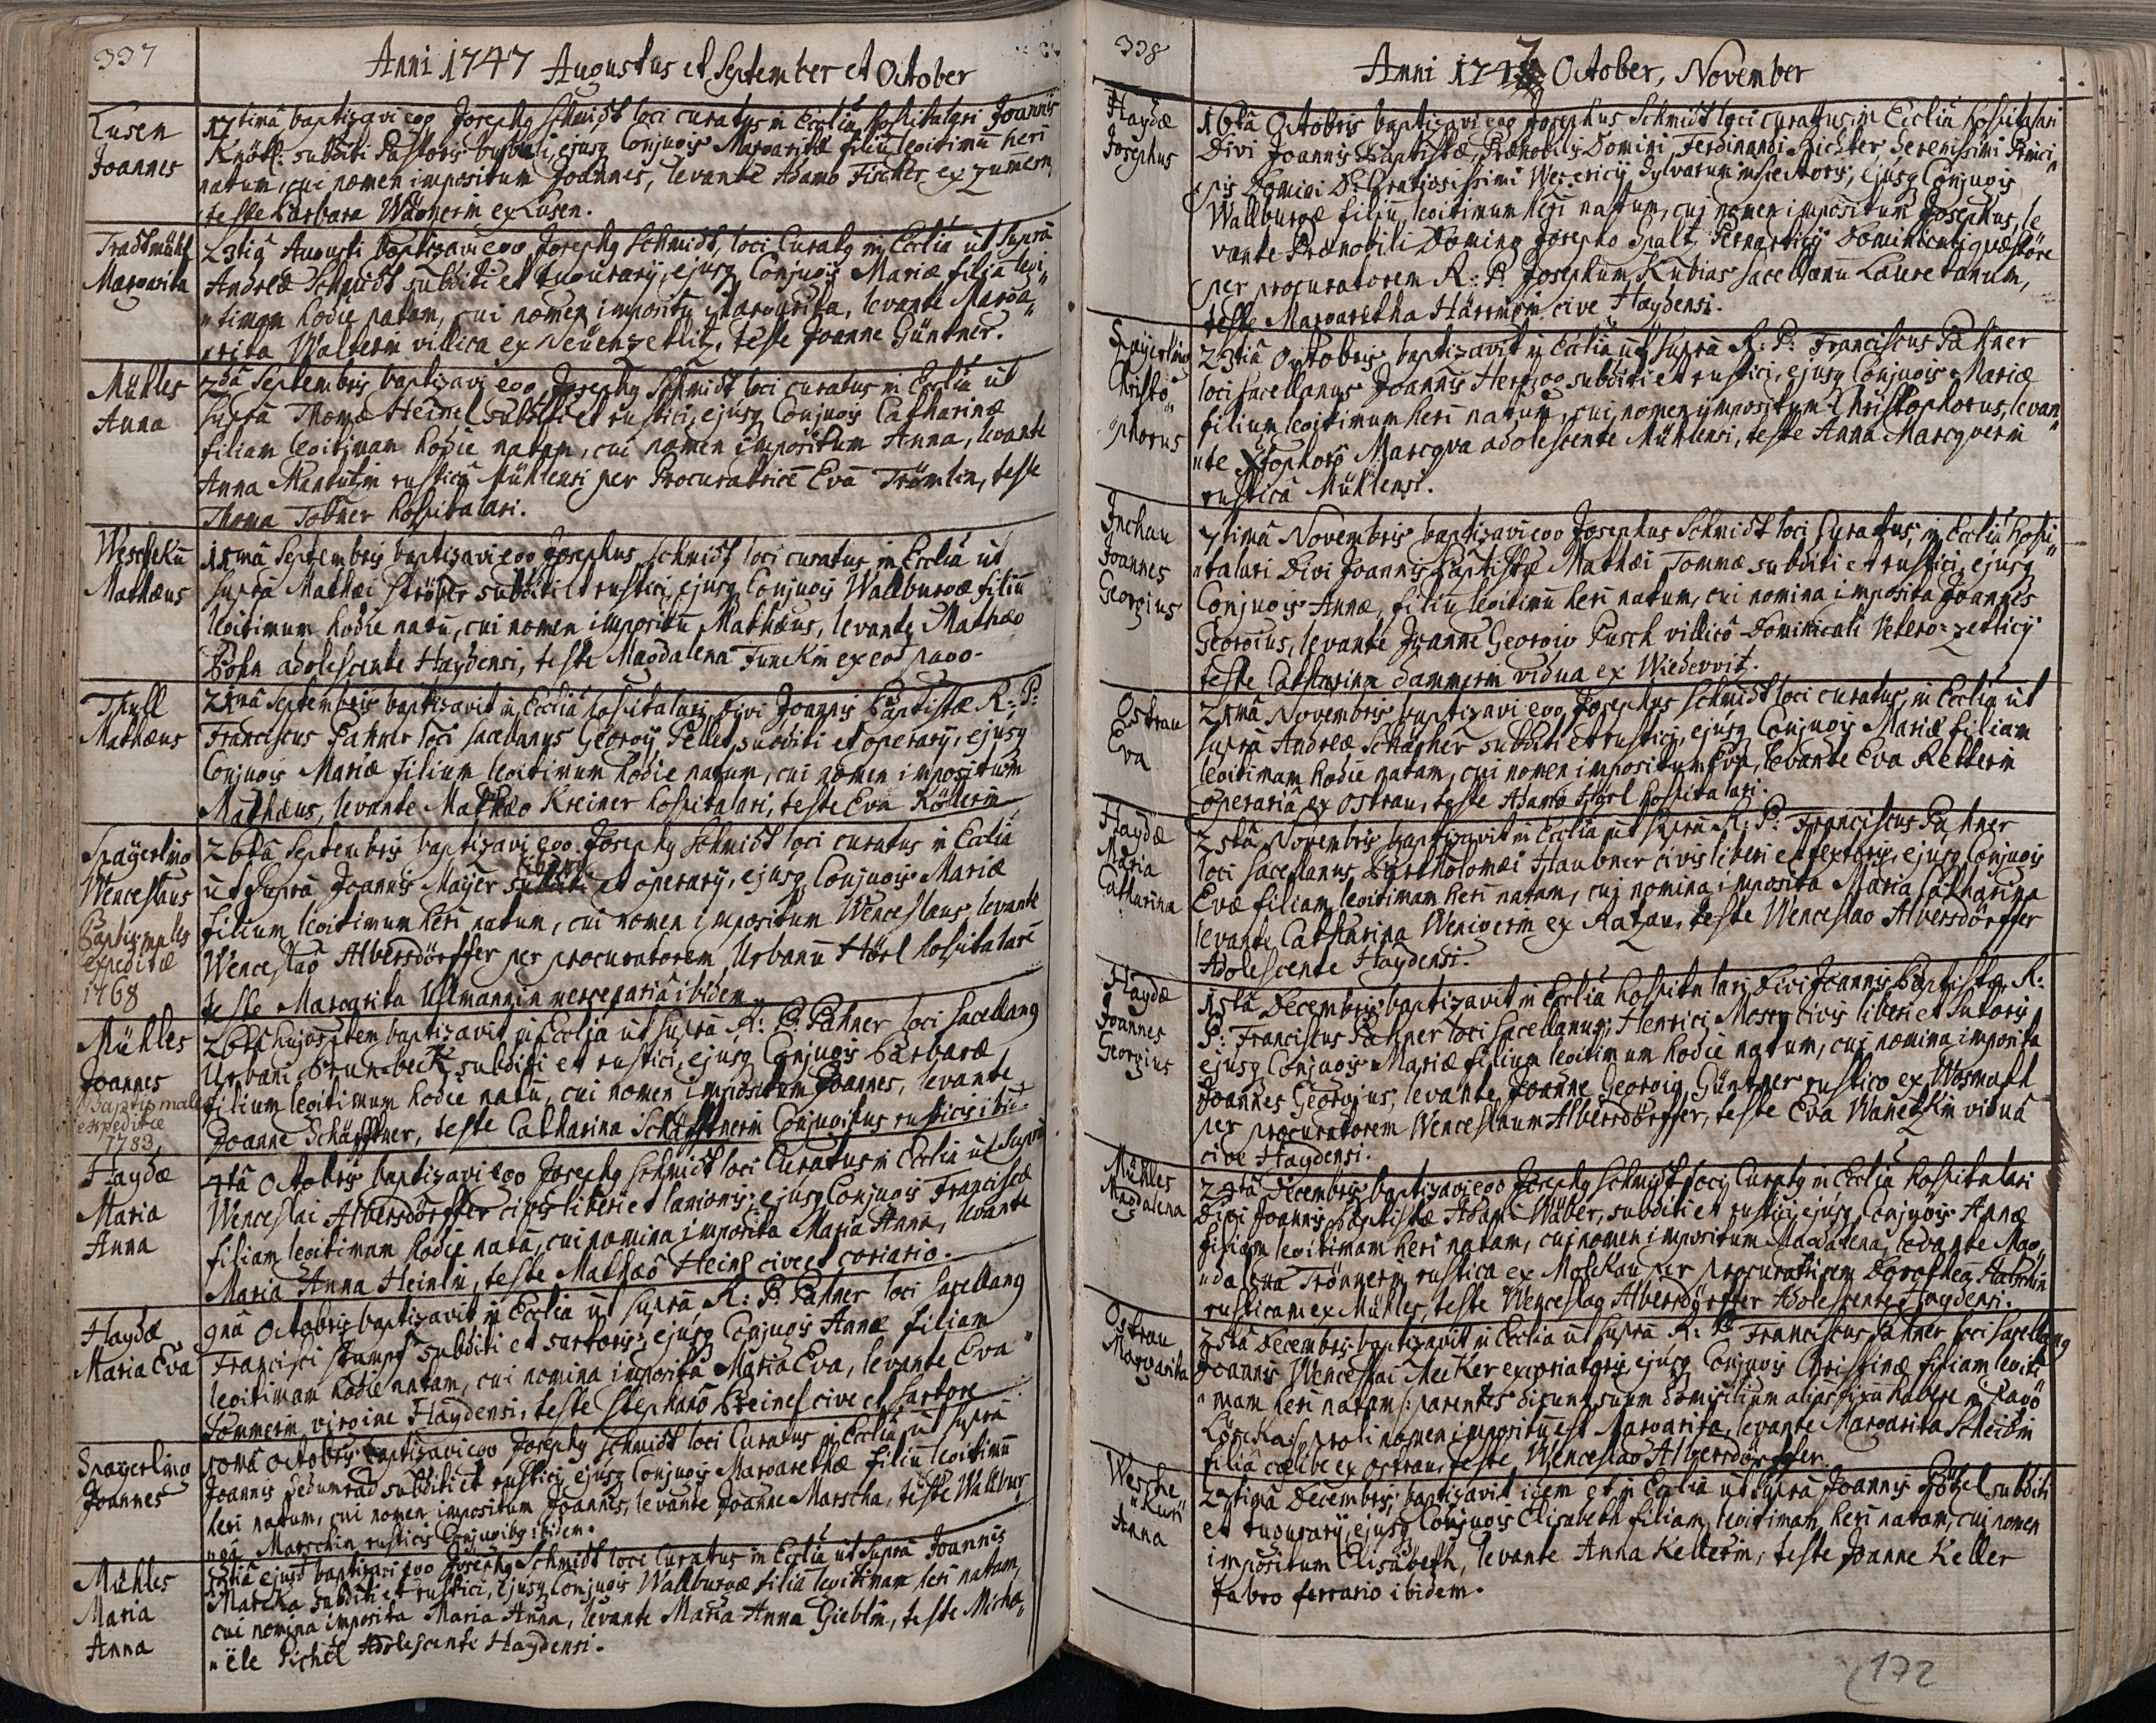 337
Anni 1747 Augustus et September et October
Lusen
Joannes
17timâ baptizavi ego Josephg Schmidt loci curatus in Eccliâ hospitalari Joannis
subditi Pastoris bubuli, ejusq Conjugis Margaritæ filiũ legitimũ heri
natum, cui nomen impositum Joannes, levante Adamo Fischer ex
teste Barbara Wagnerin ex Lusen.
Margarita
23tiâ Augusti baptizavi ego Josephg Schmidt loci Curatg in Eccliâ ut supra
Andreæ Schmidt subditi et tugurarij, ejusq Conjugis Mariæ filiã legi„
„timam hodie natam, cui nomen impositũ Margarita, levante Marga„
„rita Walterin villica ex Neüenzetlitz, teste Joanne Güntner.
Mühles
Anna
2dâ Septembris baptizavi ego Josephg Schmidt loci curatus in Eccliâ ut
supra Thomæ Heinel subditi et rustici, ejusq Conjugis Catharinæ
filiam legitimam hodie natam, cui nomen impositum Anna, levante
Anna rusticâ Mühlensi per Procuratricẽ Evã Trömlin, teste
Thoma hospitalari.
Weschekũ
Mathæus
Septembris baptizavi ego Josephus Schmidt loci curatus in Eccliâ ut
supra Mathæi Ströher subditi et rustici, ejusq Conjugis Wallburgæ filiũ
legitimum hodie natũ, cui nomen impositũ Mathæus, levante Mathæo
adolescente Haydensi, teste Magdalena Funckin ex eod pago.
Thull
Mathæus
21mâ Septembris baptizavit in Eccliâ hospitalari Divi Joannis Baptistæ R: P:
Franciscus Pahner loci sacellanus Georgij Peller subditi et operarij, ejusq
Conjugis Mariæ filium legitimum hodie natum, cui nomen impositum
Mathæus, levante Mathæo Kreiner hospitalari, teste Eva Köllerin
Spayerling
Wenceslaus
Baptismales
expeditæ
1768
26tâ Septembris baptizavi ego Josephg Schmidt loci curatus in Eccliâ
liberi
ut supra Joannis Mayer subditi et operarij, ejusq Conjugis Mariæ
filium legitimum heri natum, cui nomen impositum Wenceslaus, levante
Wenceslao Albersdörffer per procuratorem Urbanũ Hörl hospitalarẽ
teste Margarita Ullmannin ibidem
Mühles
Joannes
Baptismales
expeditæ
1783
26tâ hujus item baptizavit in Eccliâ ut supra R: P: Pahner loci sacellang
Urbani Brun-beck subditi et rustici, ejusq Conjugis Barbaræ
filium legitimum hodie natũ, cui nomen impositum Joannes, levante
Joanne Schäffner, teste Catharina Schäffnerin Conjugibus rusticis
Haydæ
Maria
Anna
4tâ Octobris baptizavi ego Josephg Schmidt loci Curatus in Eccliâ ut supra
Wenceslai Albersdörffer civis liberi et lanionis, ejusq Conjugis Franciscæ
filiam legitimam hodie natã, cui nomina imposita Maria Anna, levante
Maria Anna Heinlin, teste Mathæo Heinl cive et coriario.
Haydæ
Maria Eva
9nâ Octobris baptizavit in Eccliâ ut supra R: P: Pahner loci sacellang
Francisci Stumpf subditi et sartoris, ejusq Conjugis Annæ filiam
legitimam hodie natam, cui nomina imposita Maria Eva, levante Eva
Tommerin virgine Haydensi, teste Stephano cive et sartore
Spayerling
Joannes
10mâ Octobris baptizavi ego Josephg Schmidt loci Curatus in Eccliâ ut supra
Joannis subditi et rustici, ejusq Conjugis Margarethæ filiũ legitimũ
heri natum, cui nomen impositum Joannes, levante Joanne Marscha, teste Wallbur„
„ga Marschin rusticis Conjugibg ibidem.
Mühles
Maria
Anna
ejusd baptizavi ego Josephg Schmidt loci Curatus in Eccliâ ut supra Joannis
subditi et rustici, ejusq Conjugis Wallburgæ filiã legitimam heri natam,
cui nomina imposita Maria Anna, levante Maria Anna Gieblin, teste Micha„
„ële Pichel Adolescente Haydensi.
338
Anni 1747 October, November
Haydæ
Josephus
16tâ Octobris baptizavi ego Josephus Schmidt loci curatus in Eccliâ hospitalari
Divi Joannis Baptistæ, Prænobilis Domini Ferdinandi Richter Serenissimi Princi„
„pis Domini D: Gratiosissimi Sylvarum inspectoris, ejusq Conjugis
Wallburgæ filiũ legitimum heri natum, cui nomen impositum Josephus, le
vante Prænobili Domino Josepho Spalt Dominicali quæstore
per procuratorem R: P: Josephum Kubias sacellanũ Lauretanum,
teste Margaretha cive Haydensi.
Spayerling
Christo„
„phorus
23tiâ Octobris baptizavit in Eccliâ ut supra R: P: Franciscus Pahner
loci sacellanus Joannis Hertzog subditi et rustici, ejusq Conjugis Mariæ
filium legitimum heri natum, cui nomen impositum Christophorus, levan„
„te Xstophoro Marcqva adolescente Mühlensi, teste Anna Marcqverin
rusticâ Mühlensi.
Inchau
Joannes
Georgius
7timâ Novembris baptizavi ego Josephus Schmidt loci Curatus, in Eccliâ hospi„
„talari Divi Joannis Baptistæ Mathæi Tommæ subditi et rustici, ejusq
Conjugis Annæ, filiũ legitimũ heri natum, cui nomina imposita Joannes
Georgius, levante Joanne Georgio Pusch villico Dominicali Vetero-zetlicij
teste Catharina Dammerin vidua ex Wiederwitz.
Ostrau
Eva
21mâ Novembris baptizavi ego Josephus Schmidt loci curatus, in Eccliâ ut
supra Andreæ Schäffner subditi et rustici, ejusq Conjugis Mariæ filiam
legitimam hodie natam, cui nomen impositum Eva, levante Eva Retterin
operariâ ex Ostrau, teste Adamo Hörl hospitalari.
Haydæ
Maria
Catharina
25tâ Novembris baptizavit in Eccliâ ut supra R: P: Franciscus Pahner
loci sacellanus, Bartholomæi Haubner civis liberi et textoris, ejusq Conjugis
Evæ filiam legitimam heri natam, cui nomina imposita Maria Catharina
levante Catharina Wenigerin ex Razau, teste Wenceslao Albersdörffer
Adolescente Haydensi.
Haydæ
Joannes
Georgius
15tâ Decembris baptizavit in Eccliâ hospitalari Divi Joannis Baptistæ R:
P: Franciscus Pahner loci Sacellanus, Henrici Moser civis liberi et sutoris
ejusq Conjugis Mariæ filium legitimum hodie natum, cui nomina imposita
Joannes Georgius, levante Joanne Georgio Güntner rustico ex
per procuratorem Wenceslaum Albersdörffer, teste Eva Wanetzkin viduâ
cive Haydensi.
Mühles
Magdalena
24tâ Decembris baptizavi ego Josephg Schmidt loci Curatg in Eccliâ hospitalari
Divi Joannis Baptistæ Adami Wäber, subditi et rustici, ejusq Conjugis Annæ
filiam legitimam heri natam, cui nomen impositum Magdalena, levante Mag„
„dalena Trönnerin rustica ex Molekau per procuratricem Dorotheã
rusticam ex Mühles, teste Wenceslao Albersdörffer Adolescente Haydensi.
Ostrau
Margarita
25tâ Decembris baptizavit in Eccliâ ut supra R: P: Franciscus Pahner loci sacellang
Joannis Wenceslai Mecker excoriatoris, ejusq Conjugis Christinæ filiam legiti
„mam heri natam /: parentes dicunt suum domicilium alias fixũ habere in Pago
:/ proli nomen impositũ est Margarita, levante Margarita
filia cælibe ex Ostrau, teste Wenceslao Albersdörffer.
Wesche
„Kun
Anna
27timâ Decembris baptizavit idem et in Eccliâ ut supra Joannis Götzel subditi
et tugurarij, ejusq Conjugis Elisabeth filiam legitimam heri natam, cui nomen
impositum Elisabeth, levante Anna Kellerin, teste Joanne Keller
fabro ferrario ibidem.
172